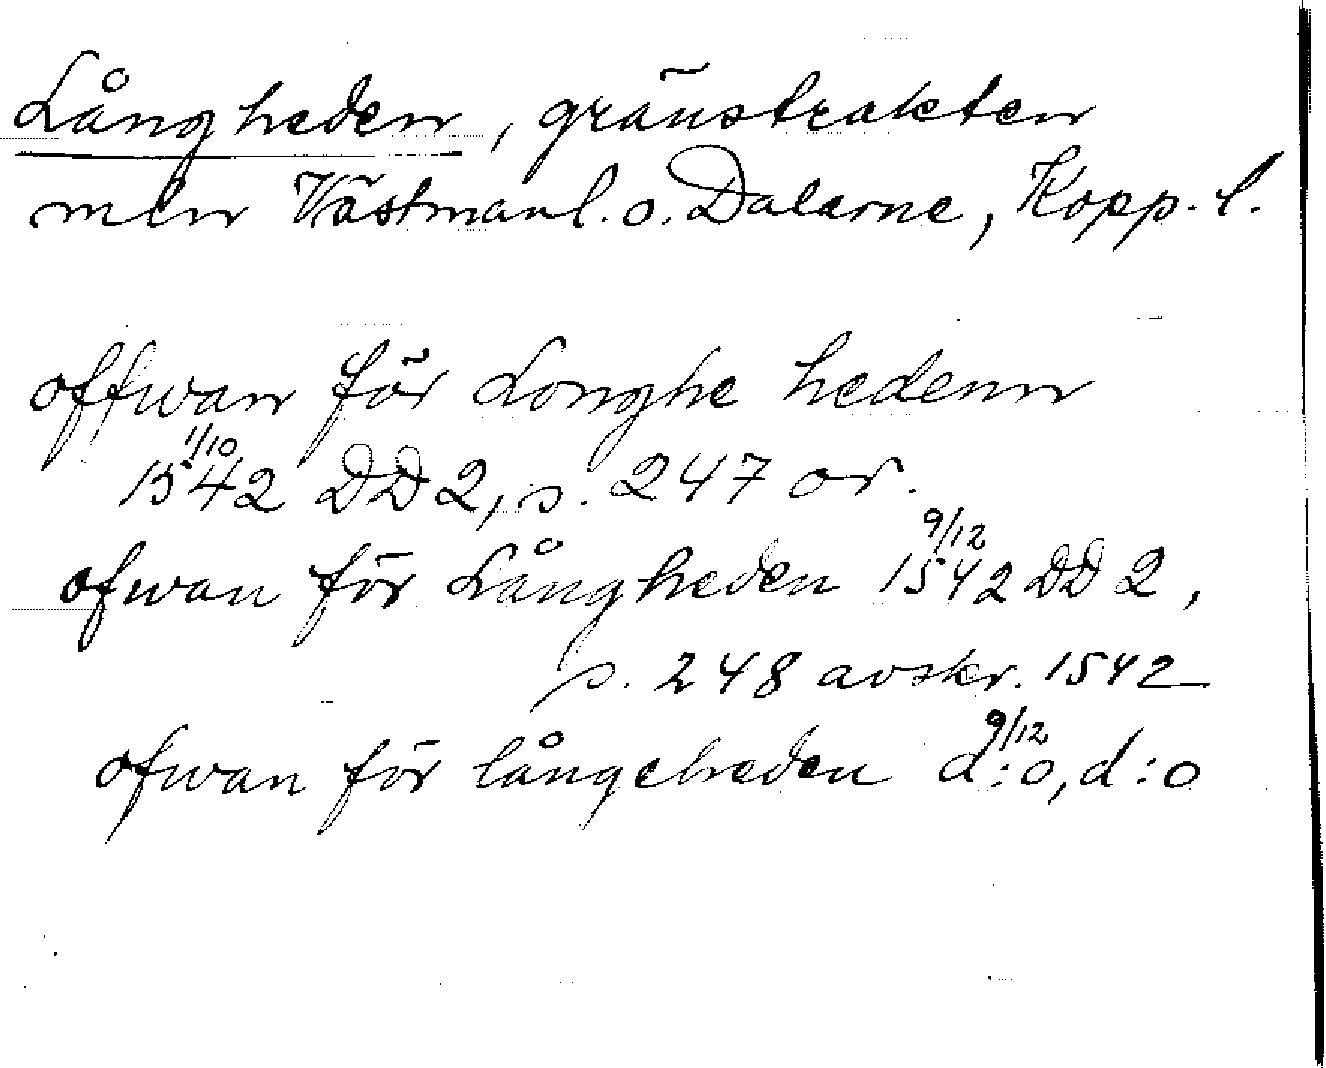 Långheden, gränstrakten
mln Västmanl. o. Dalarne, Kopp. l.
offwan för Longhe hedenn
1/10
1542 DD 2, s. 247 or.
9/12
ofwan för Långheden 1542 DD 2,
s. 248 avskr. 1542
9/12
ofwan för långeheden d:o, d:o